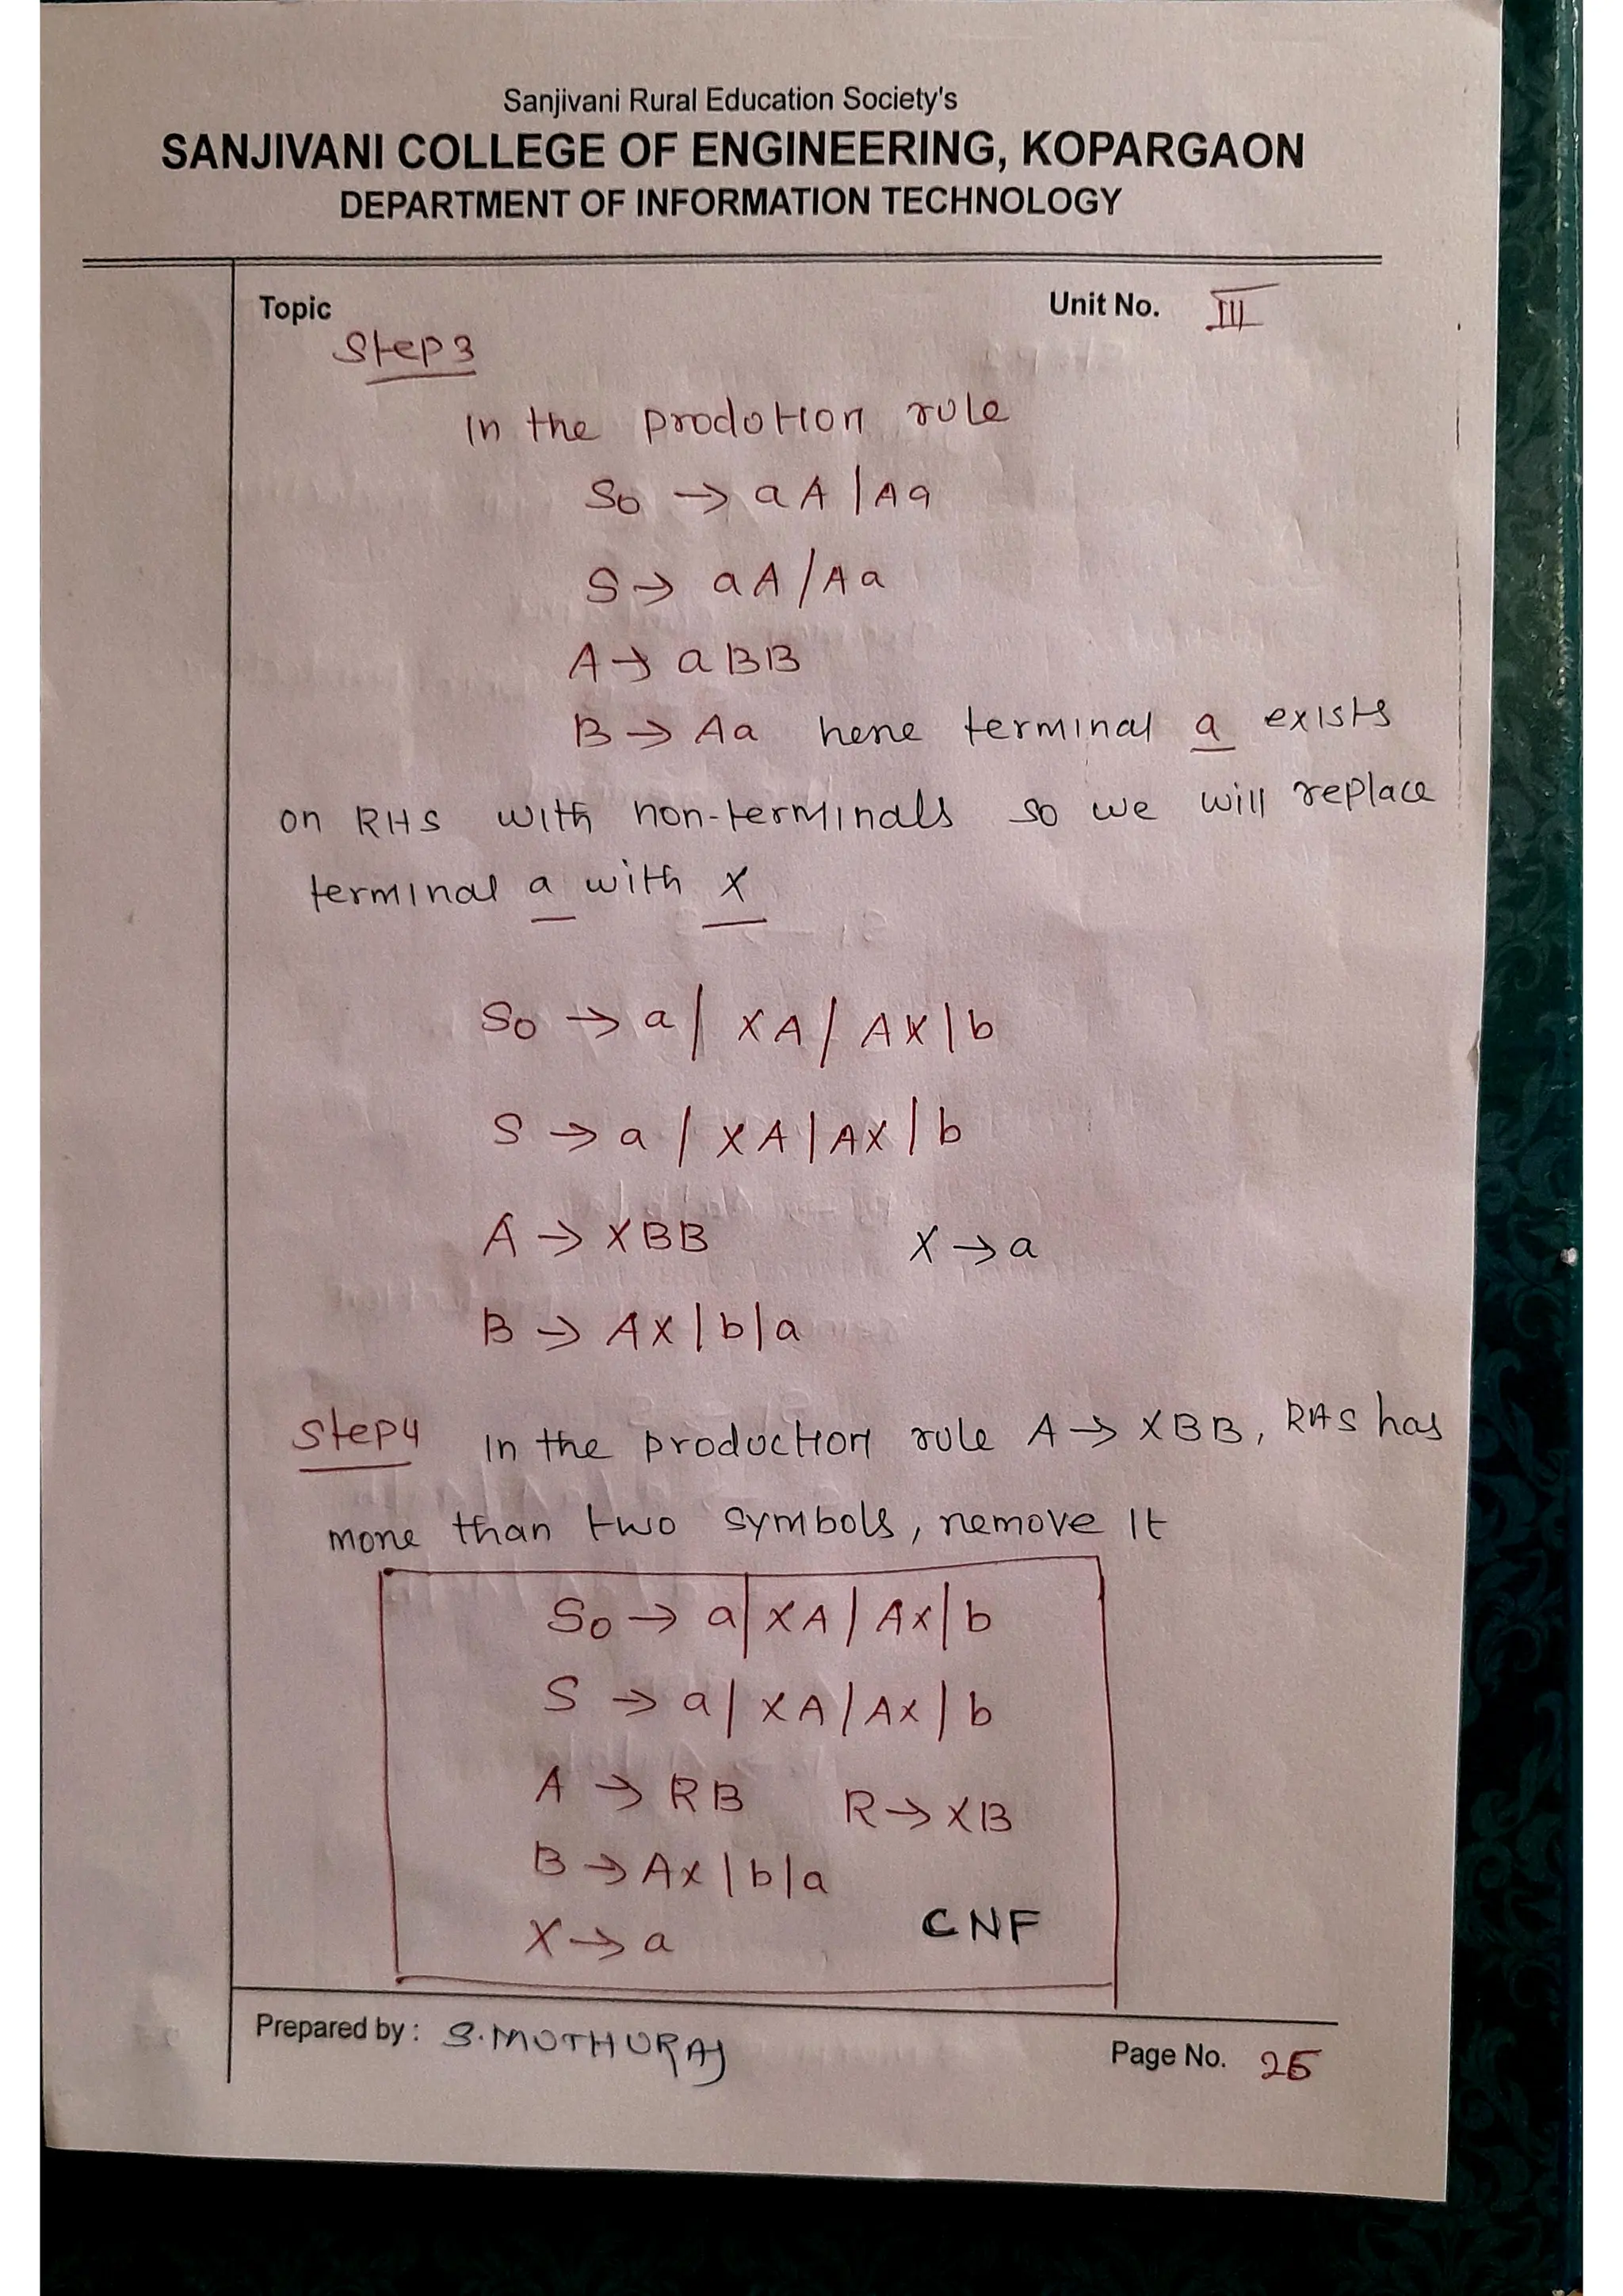 Sanjivani Rural Education Society's
SANJIVANI COLLEGE OF ENGINEERING, KOPARGAON
DEPARTMENT OF INFORMATION TECHNOLOGY
Topic Unit No. III
Step3
In the prodution rule
S₀ → aA | Aa
S → aA / Aa
A → aBB
B → Aa here terminal a exists
on RHS with non-terminals so we will replace
terminal a with X
S₀ → a | XA / AX | b
S → a / XA | AX | b
A → XBB X → a
B → AX | b | a
Step4 In the production rule A → XBB, RHS has
more than two symbols, remove it
S₀ → a | XA | AX | b
S → a | XA | AX | b
A → RB R → XB
B → AX | b | a
X → a CNF
Prepared by : S.MUTHURAJ
Page No. 25